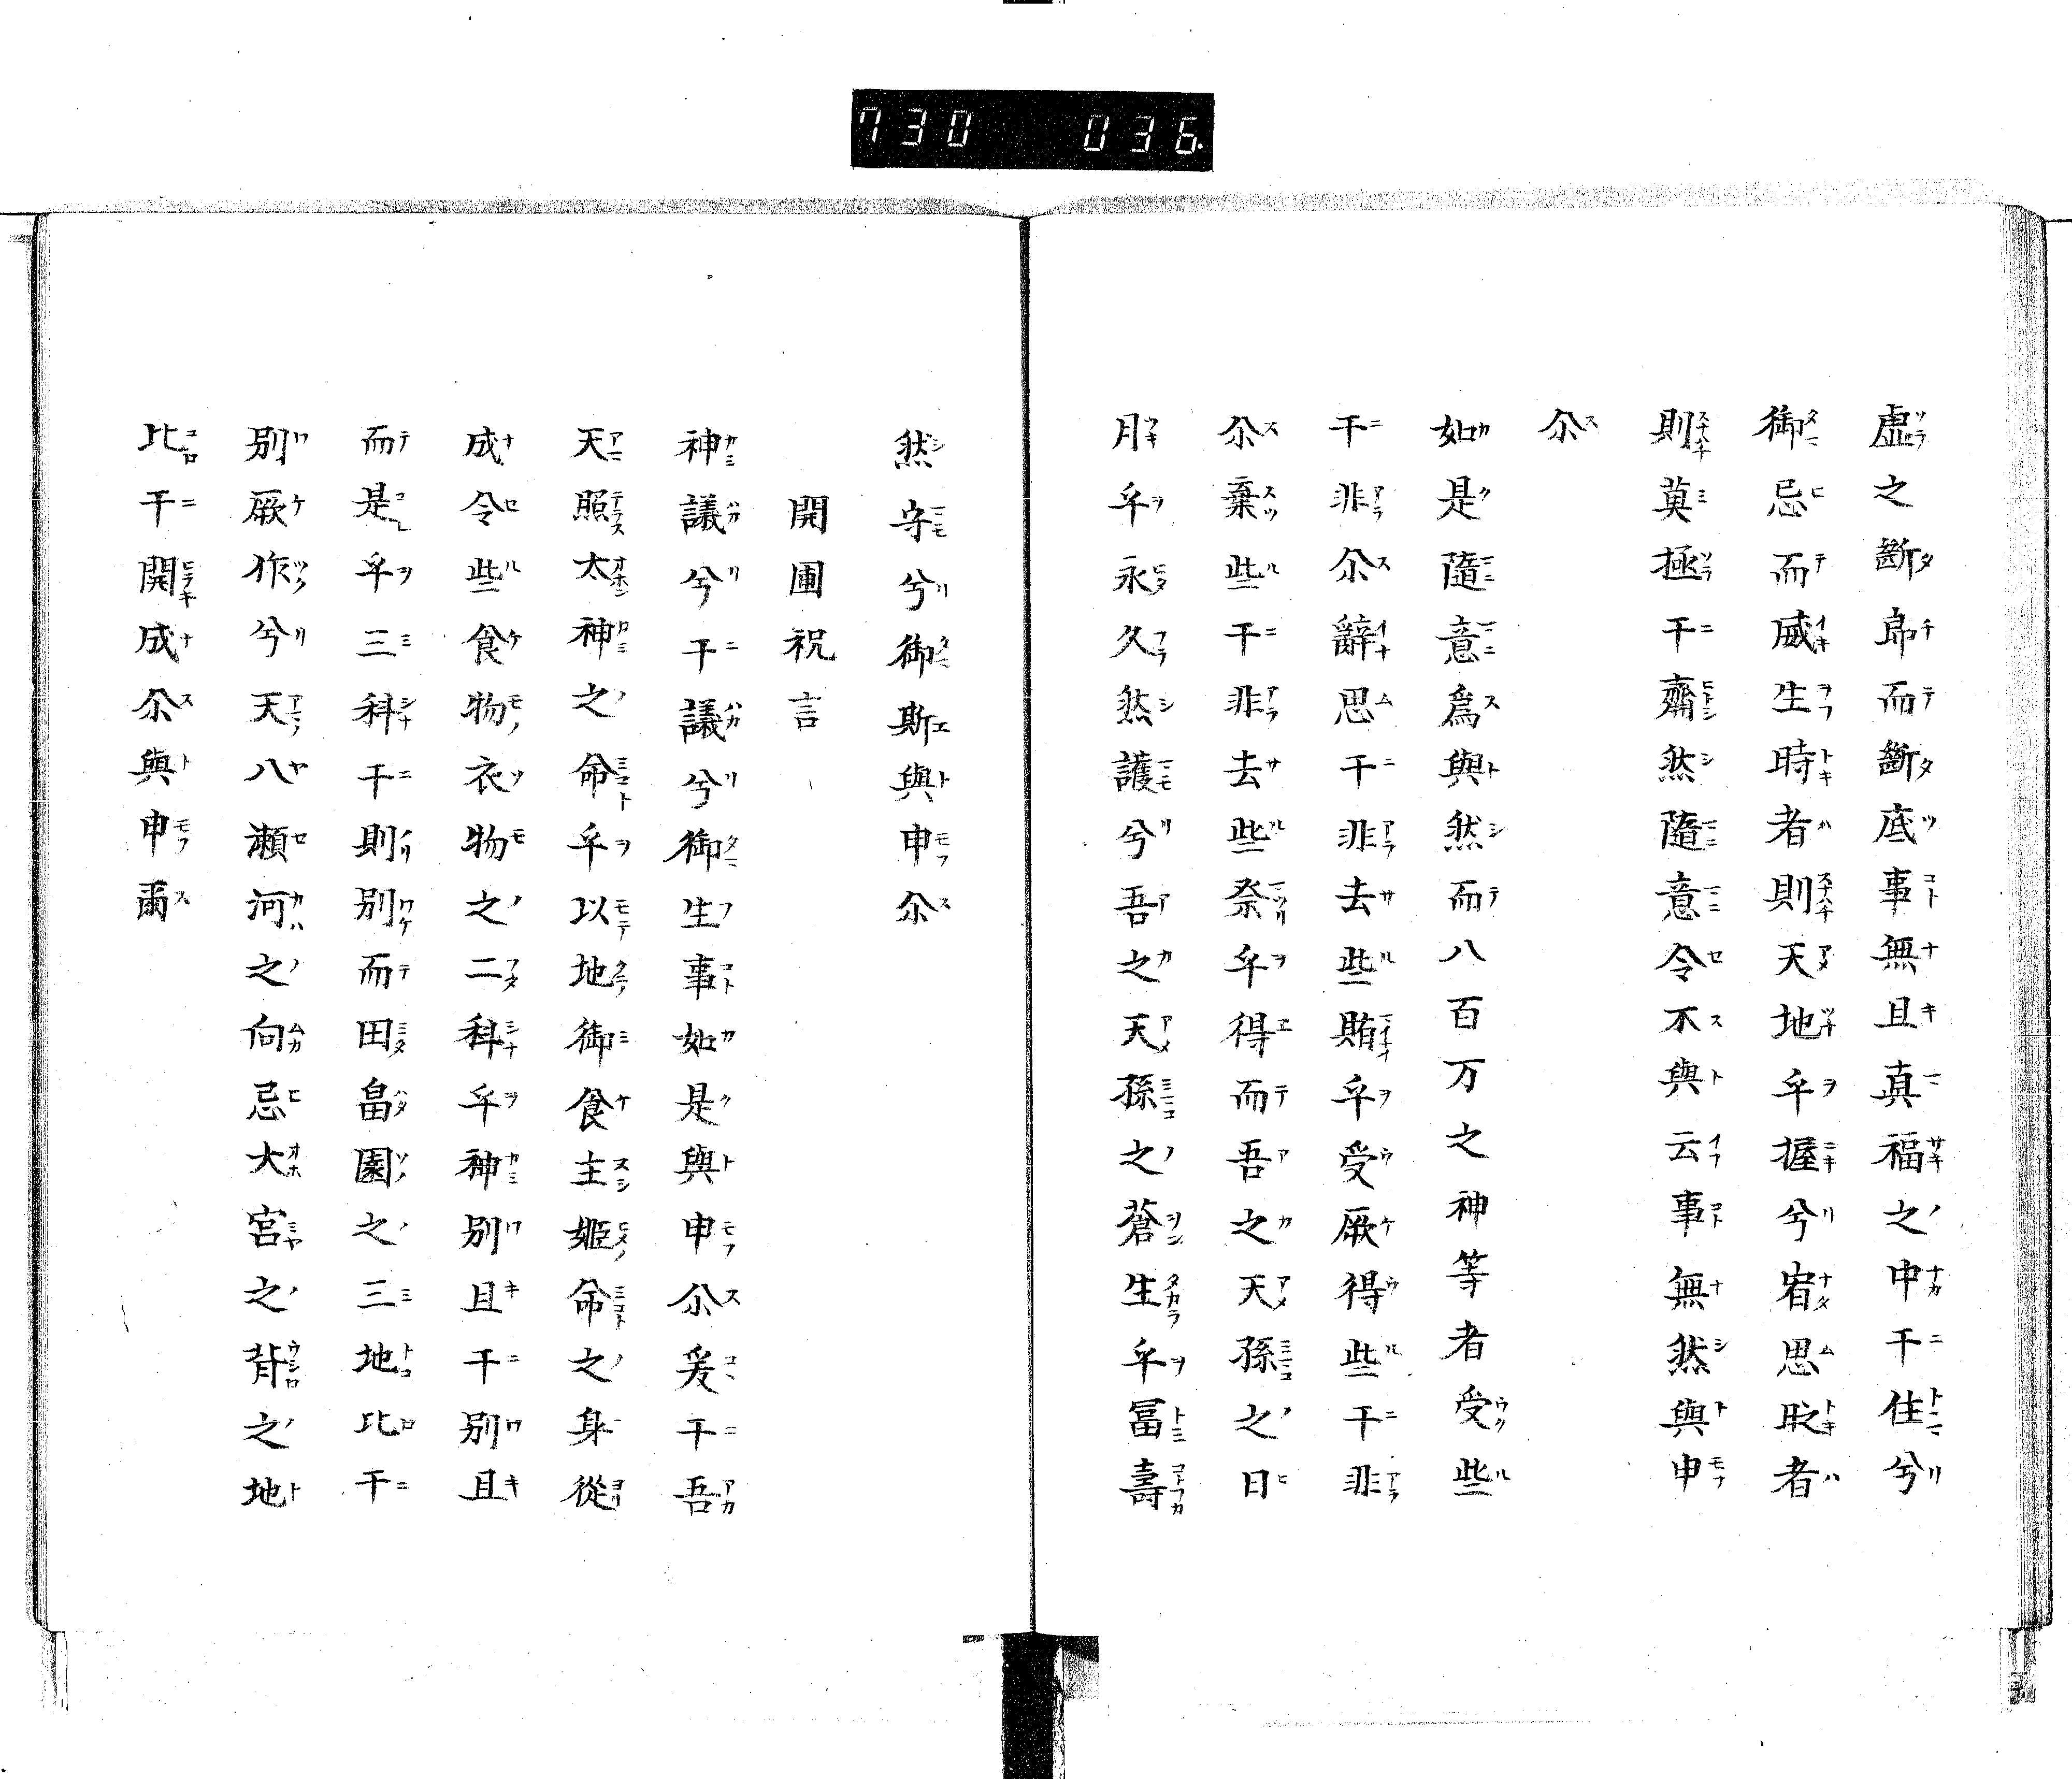 730 036
虚之斷郎而斷底事無且真福之中干住兮
御忌而威生時者則天地乎握兮宿思時者
則莫極干齋然隨意令不與云事無然與申
尒
如是隨意為與然而八百万之神等者受些
干非尒辭思干非去些賄乎受厥得些干非
尒棄些干非去些祭乎得而吾之天孫之日
月乎永久然護兮吾之天孫之蒼生乎冨壽
然守兮御斯與申尒
開圃祝言
神議兮干議兮御生事如是與申尒爰干吾
天照太神之命乎以地御食主姬命之身從
成令些食物衣物之二科乎神別且干別且
而是乎三科干則別而田畠園之三地比干
別厥作兮天八瀬河之向忌大宮之背之地
比干開成尒與申爾